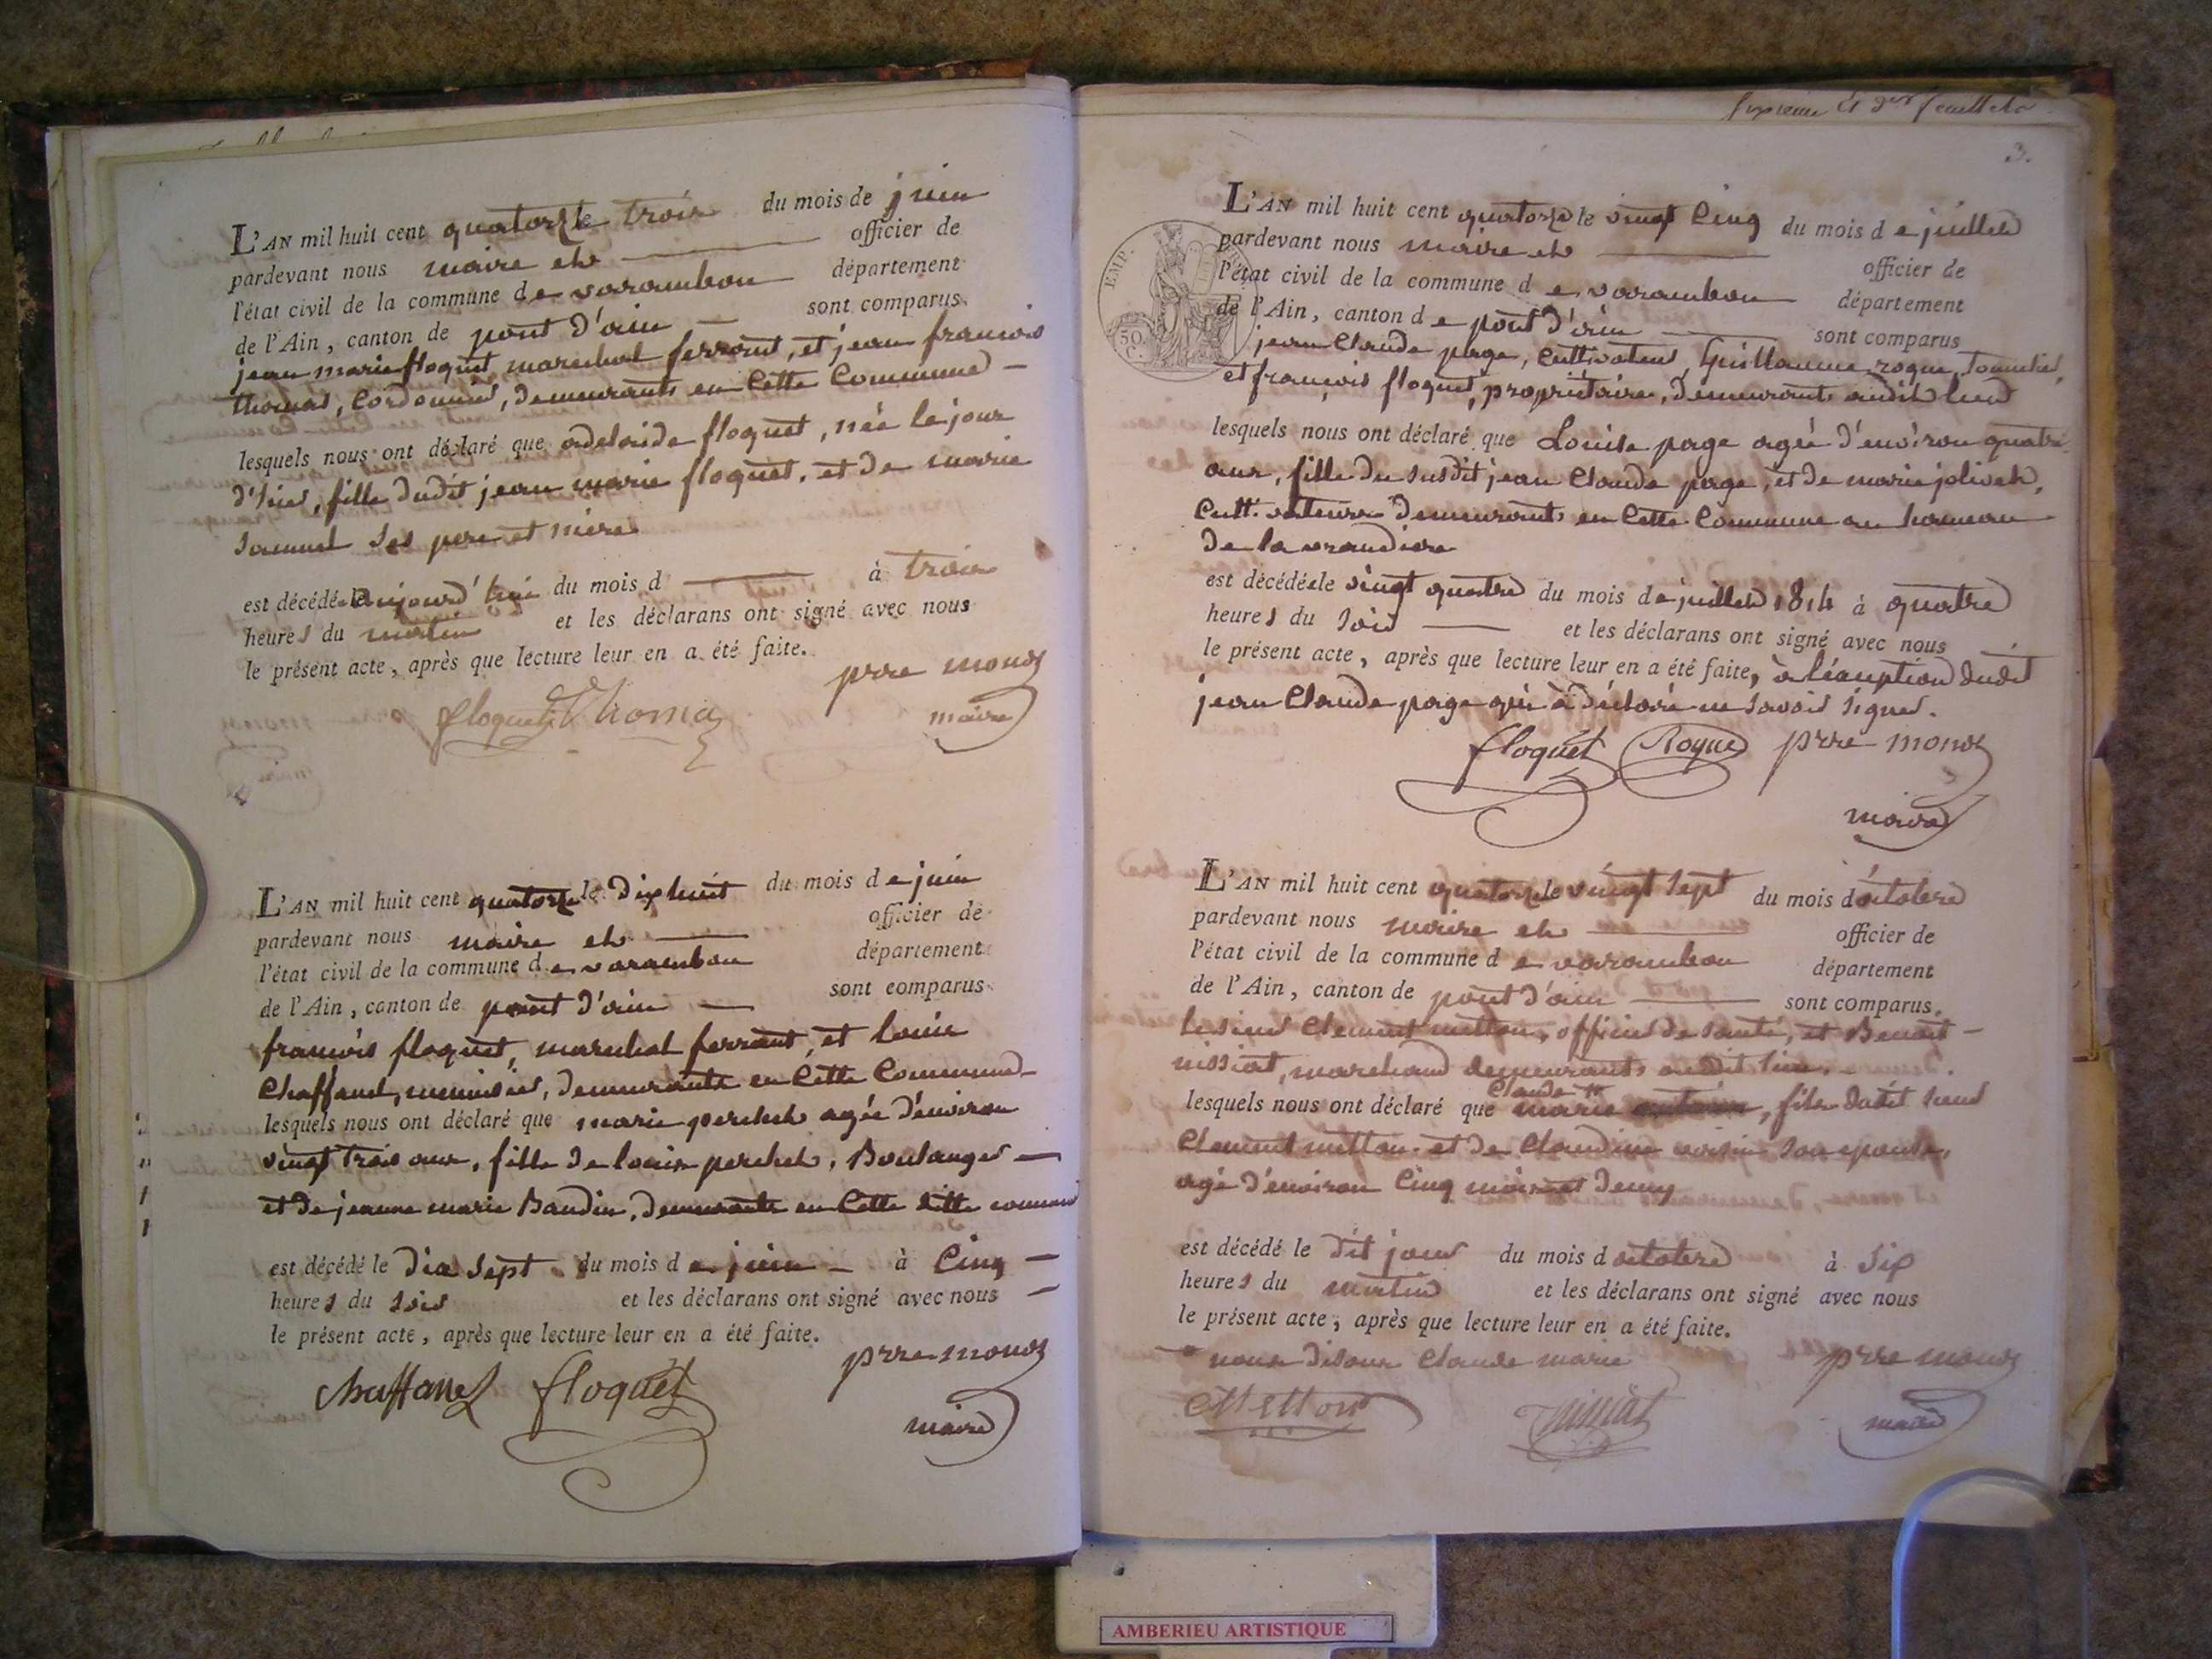 L'AN mil huit cent quatorze le trois du mois de juin
pardevant nous maire et officier de
l'état civil de la commune de varambon département
de l'Ain, canton de pont d'ain sont comparus
jean marie floquet, marechal ferrant, et jean francois
thomas, Cordonnier, demeurants en Cette Commune
lesquels nous ont déclaré que adelaide floquet, née le jour
d'hier, fille dudit jean marie floquet, et de marie
ses pere et mere
est décédée aujourd'hui du mois d à trois
heures du matin et les déclarans ont signé avec nous
le présent acte, après que lecture leur en a été faite.
floquet Thomas prre monoz
maire
L'AN mil huit cent quatorze le dix huit du mois de juin
pardevant nous maire et officier de
l'état civil de la commune de varambon département
de l'Ain, canton de pont d'ain sont comparus
francois floquet, marechal ferrant, et louis
Chaffanel, menuisier, demeurants en Cette Commune
lesquels nous ont déclaré que marie perchet agée d'environ
vingt trois ans, fille de louis perchet, Boulanger
et de jeanne marie Baudin, demeurants en Cette ditte commune
est décédé le dix sept du mois de juin à Cinq
heures du soir et les déclarans ont signé avec nous
le présent acte, après que lecture leur en a été faite.
chaffanel floquet prre monoz
maire
et feuillets
3.
L'AN mil huit cent quatorze le vingt Cinq du mois de juillet
pardevant nous maire et officier de
l'état civil de la commune de varambon département
de l'Ain, canton de pont d'ain sont comparus
EMP.
50 C.
jean Claude page, Cultivateur, Guillaume roque,
et françois floquet, propriétaire, demeurants audit lieu
lesquels nous ont déclaré que Louise page agée d'environ quatre
ans, fille du susdit jean Claude page, et de marie jolivet,
Cultivateurs demeurants en Cette Commune au hameau
de la
est décédée le vingt quatre du mois de juillet 1814 à quatre
heures du soir et les déclarans ont signé avec nous
le présent acte, après que lecture leur en a été faite, à l'éxception dudit
jean Claude page qui à déclaré ne savoir signer.
floquet Roque prre monoz
maire
L'AN mil huit cent quatorze le vingt sept du mois d'octobre
pardevant nous maire et officier de
l'état civil de la commune de varambon département
de l'Ain, canton de pont d'ain sont comparus.
le sieur Clement metton, officier de santé, et Benoit
missiat, marchand demeurants audit lieu
Claude
lesquels nous ont déclaré que marie, fils dudit sieur
Clement metton et de Claudine voisin son epouse,
agé d'environ Cinq mois et demy
est décédé le dit jour du mois d octobre à six
heures du matin et les déclarans ont signé avec nous
le présent acte, après que lecture leur en a été faite.
nous disons Claude marie
Metton missiat prre monoz
maire
AMBERIEU ARTISTIQUE